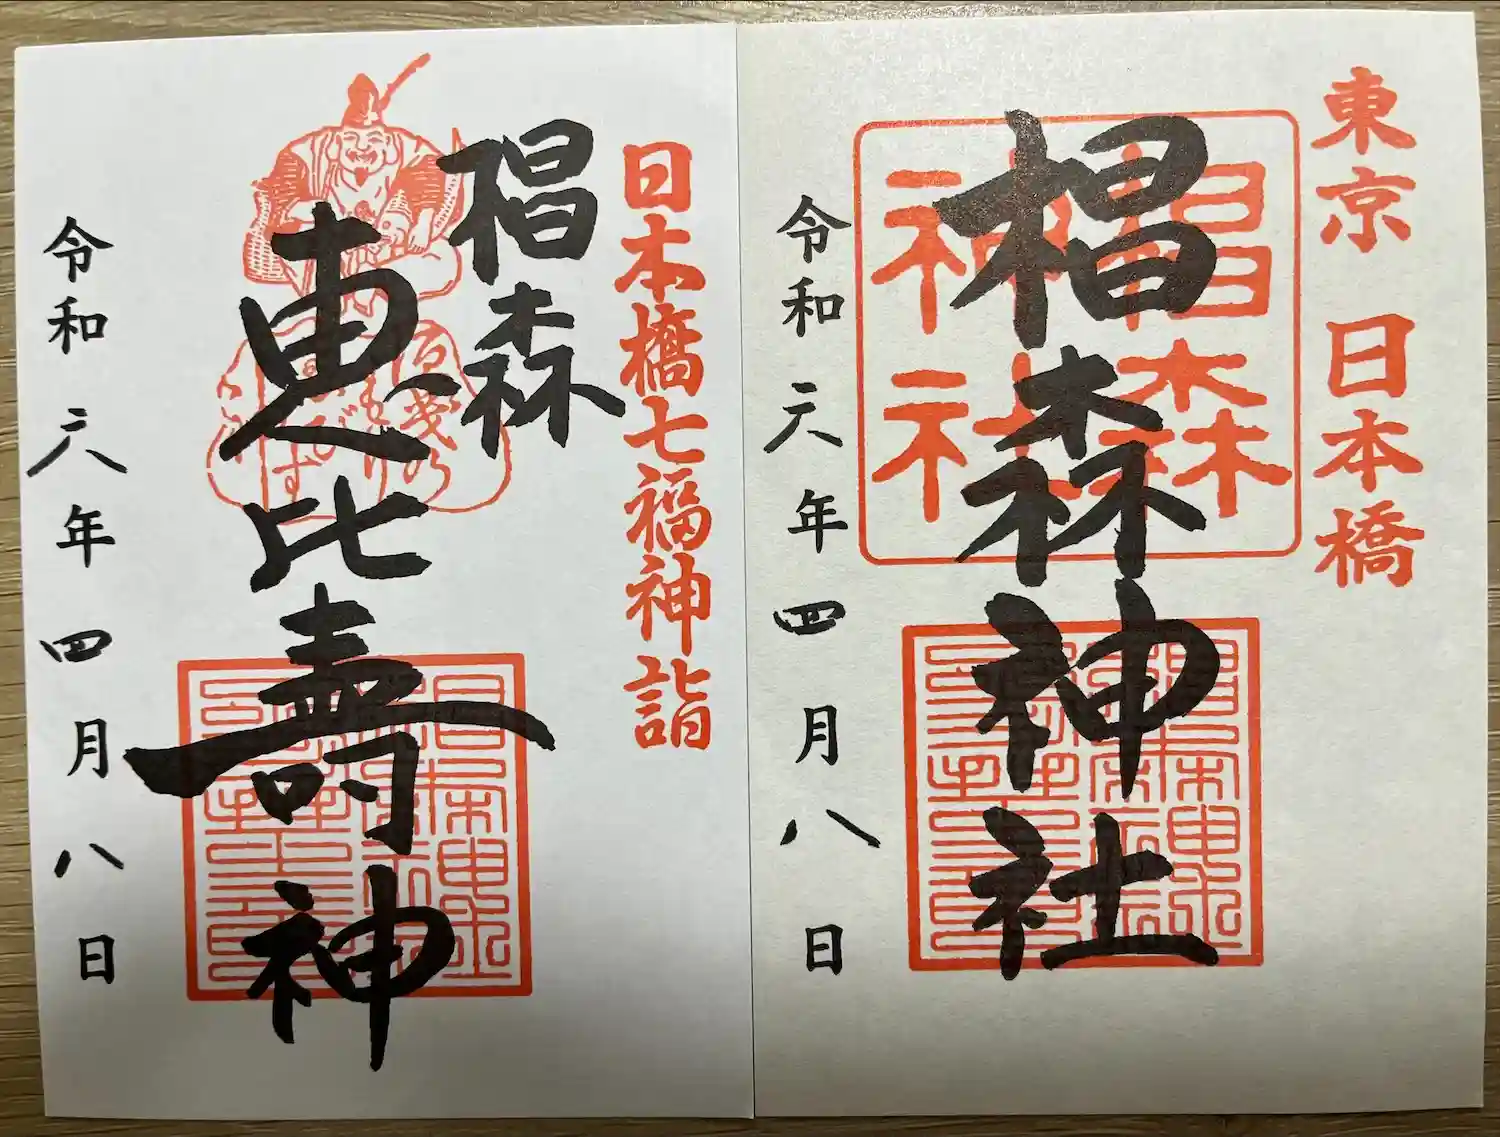 東京 日本橋
椙森神社
椙森神社
令和六年四月八日
日本橋七福神詣
椙森
恵比寿神
令和六年四月八日